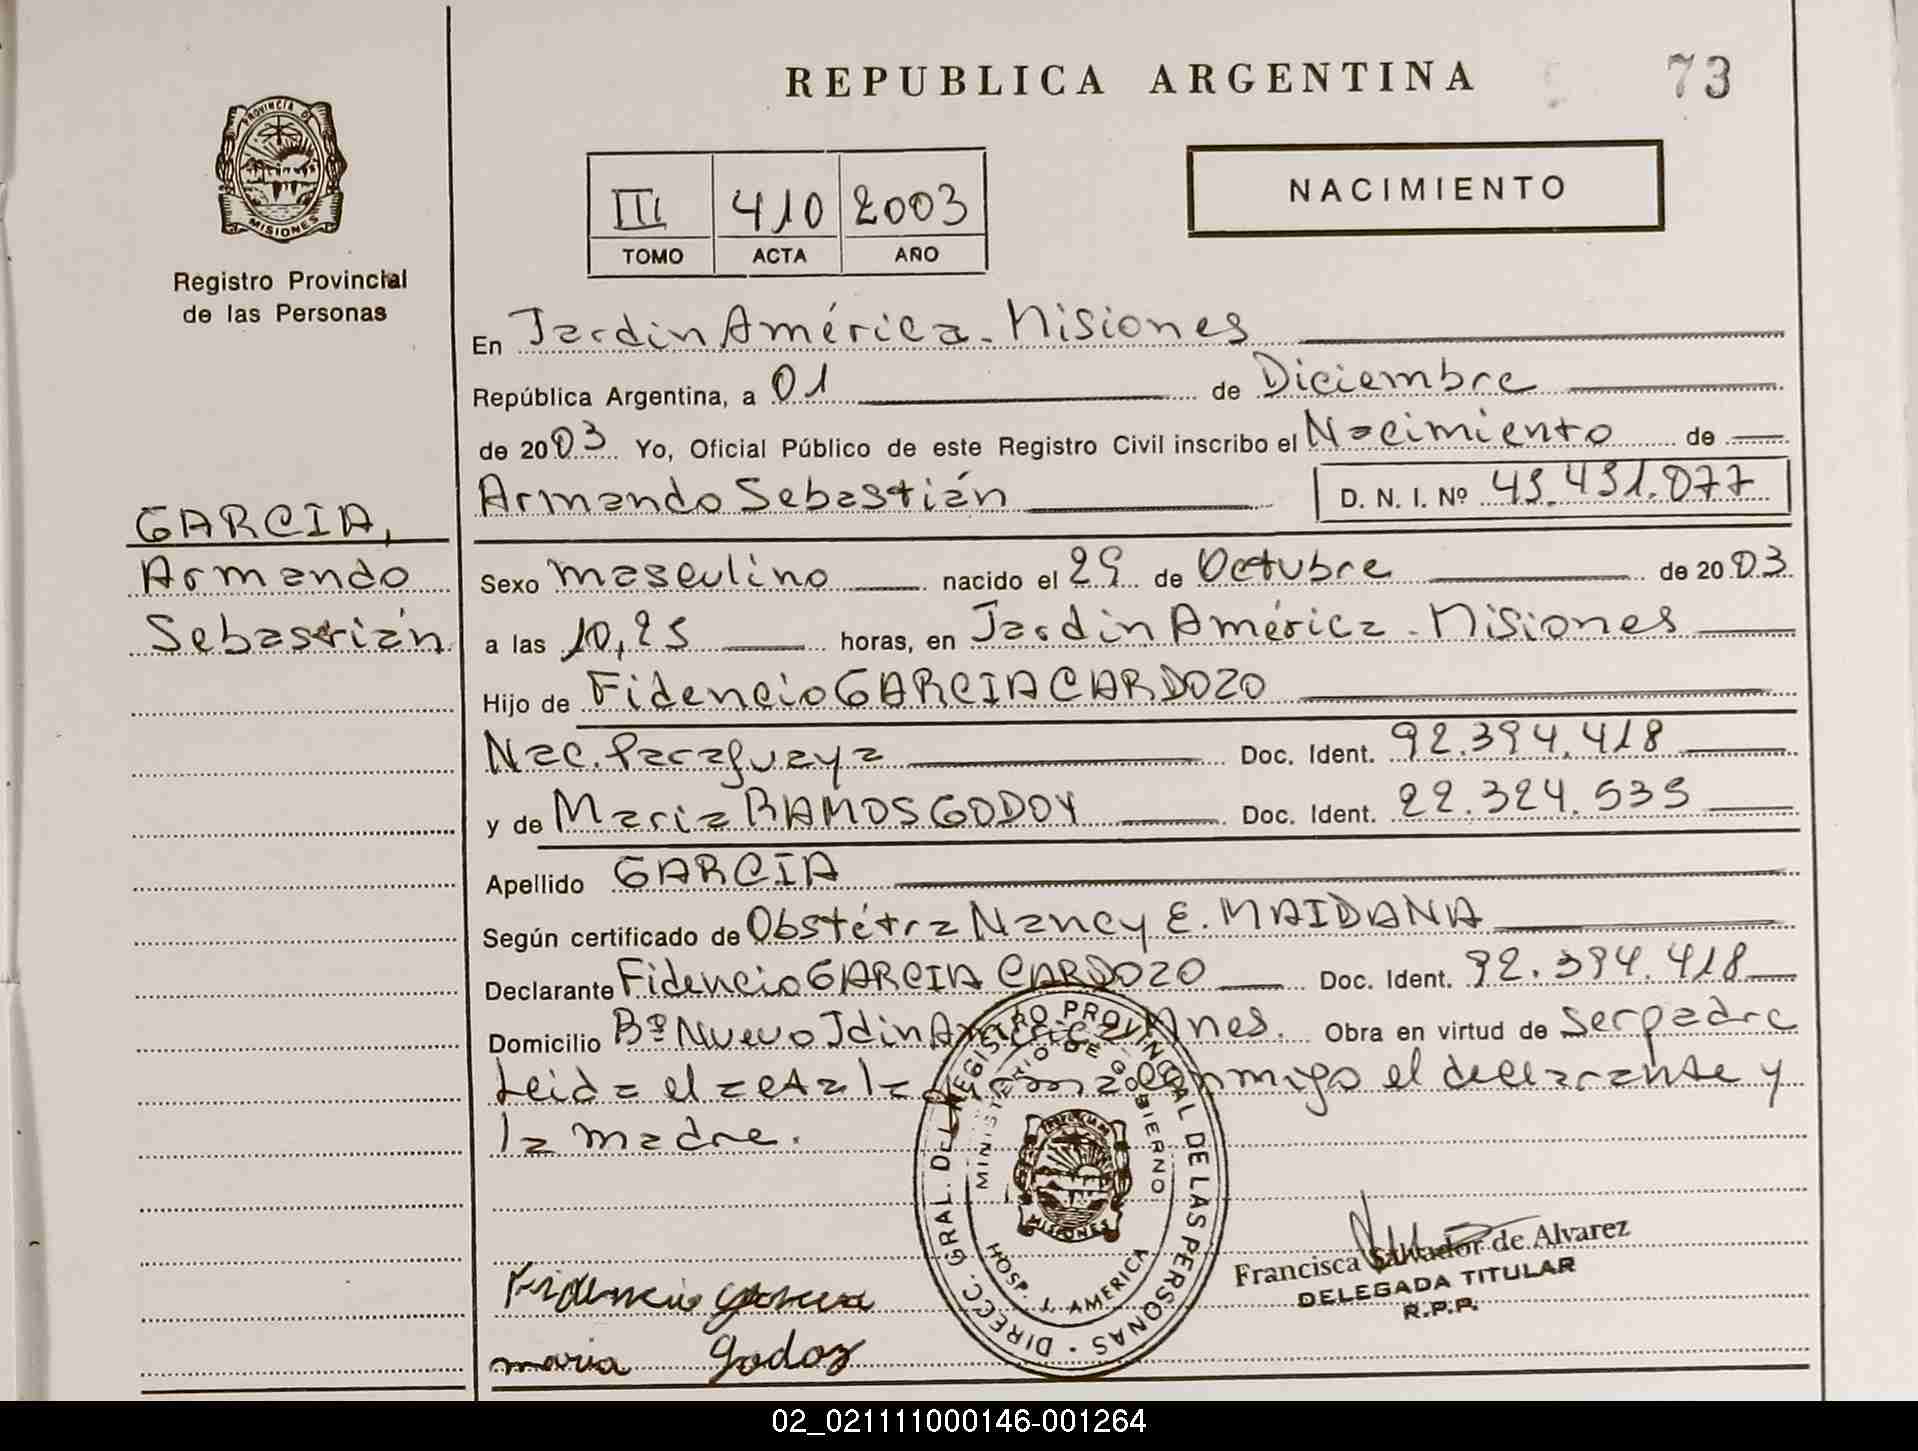 REPUBLICA ARGENTINA
73
PROVINCIA DE
MISIONES
Registro Provincial
de las Personas
III 410 2003
TOMO ACTA AÑO
NACIMIENTO
En Jardin América - Misiones
República Argentina, a 01 de Diciembre
de 2003 Yo, Oficial Público de este Registro Civil inscribo el Nacimiento de
Armando Sebastián D. N. I. Nº 45.431.077
GARCIA,
Armando
Sebastián
Sexo masculino nacido el 29 de Octubre de 2003
a las 10,25 horas, en Jardin América - Misiones
Hijo de Fidencio GARCIA CARDOZO
Nac. Paraguaya Doc. Ident. 92.394.418
y de Maria RAMOS GODOY Doc. Ident. 22.324.535
Apellido GARCIA
Según certificado de Obstétra Nancy E. MAIDANA
Declarante Fidencio GARCIA CARDOZO Doc. Ident. 92.394.418
Domicilio Bº Nuevo Jdin América Mnes. Obra en virtud de Ser padre
Leida el acta la firma conmigo el declarante y
la madre.
DIRECC. GRAL. DEL REGISTRO PROVINCIAL DE LAS PERSONAS
MINISTERIO DE GOBIERNO
MISIONES
HOSP. J. AMERICA
Francisca Salvador de Alvarez
DELEGADA TITULAR
R.P.P.
Fidencio garcia
maria godoy
02_021111000146-001264